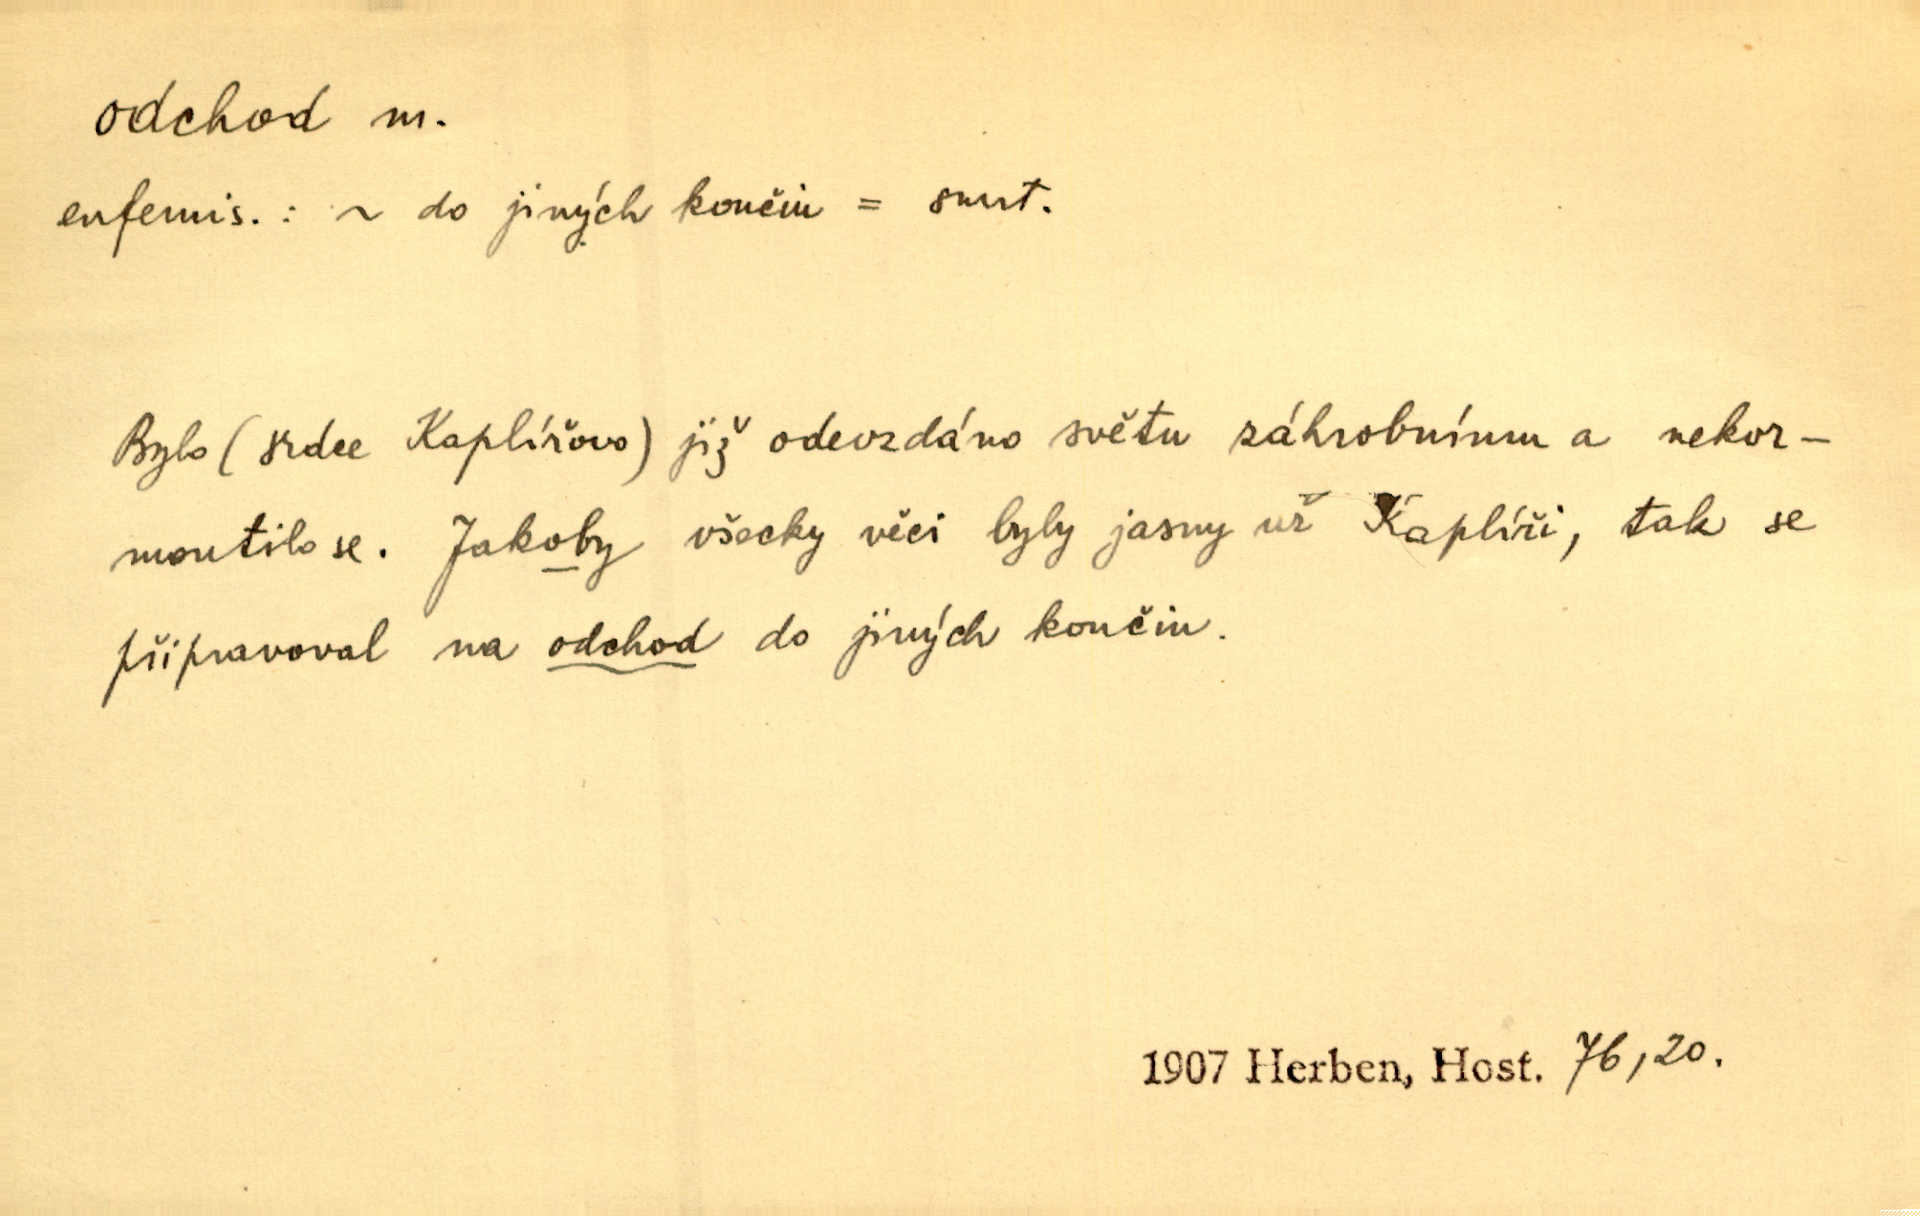 odchod m.
eufemis. : ~ do jiných končin = smrt.
Bylo (srdce Kaplířovo) již odevzdáno světu záhrobnímu a nekor-
moutilo se. Jakoby všecky věci byly jasny už Kaplíři, tak se
připravoval na odchod do jiných končin.
1907 Herben, Host. 76,20.